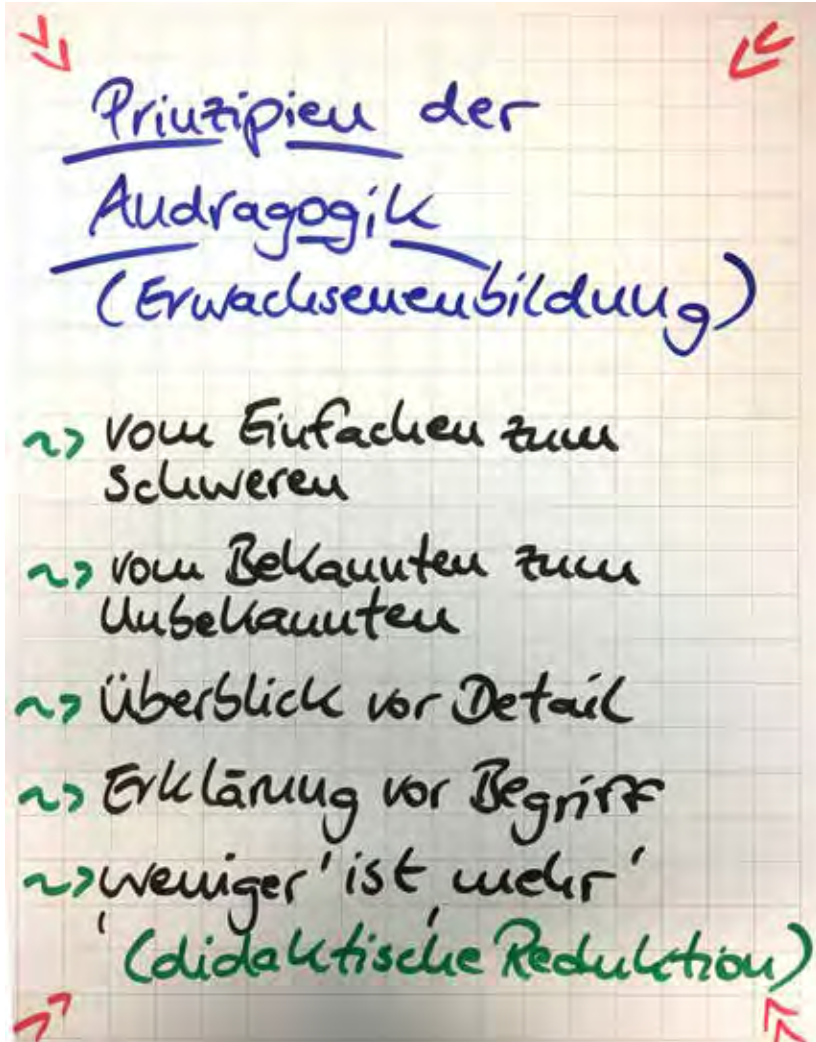 Prinzipien der
Andragogik
(Erwachsenenbildung)
~> vom Einfachen zum
Schweren
~> vom Bekannten zum
Unbekannten
~> Überblick vor Detail
~> Erklärung vor Begriff
~> 'weniger' ist 'mehr'
(didaktische Reduktion)